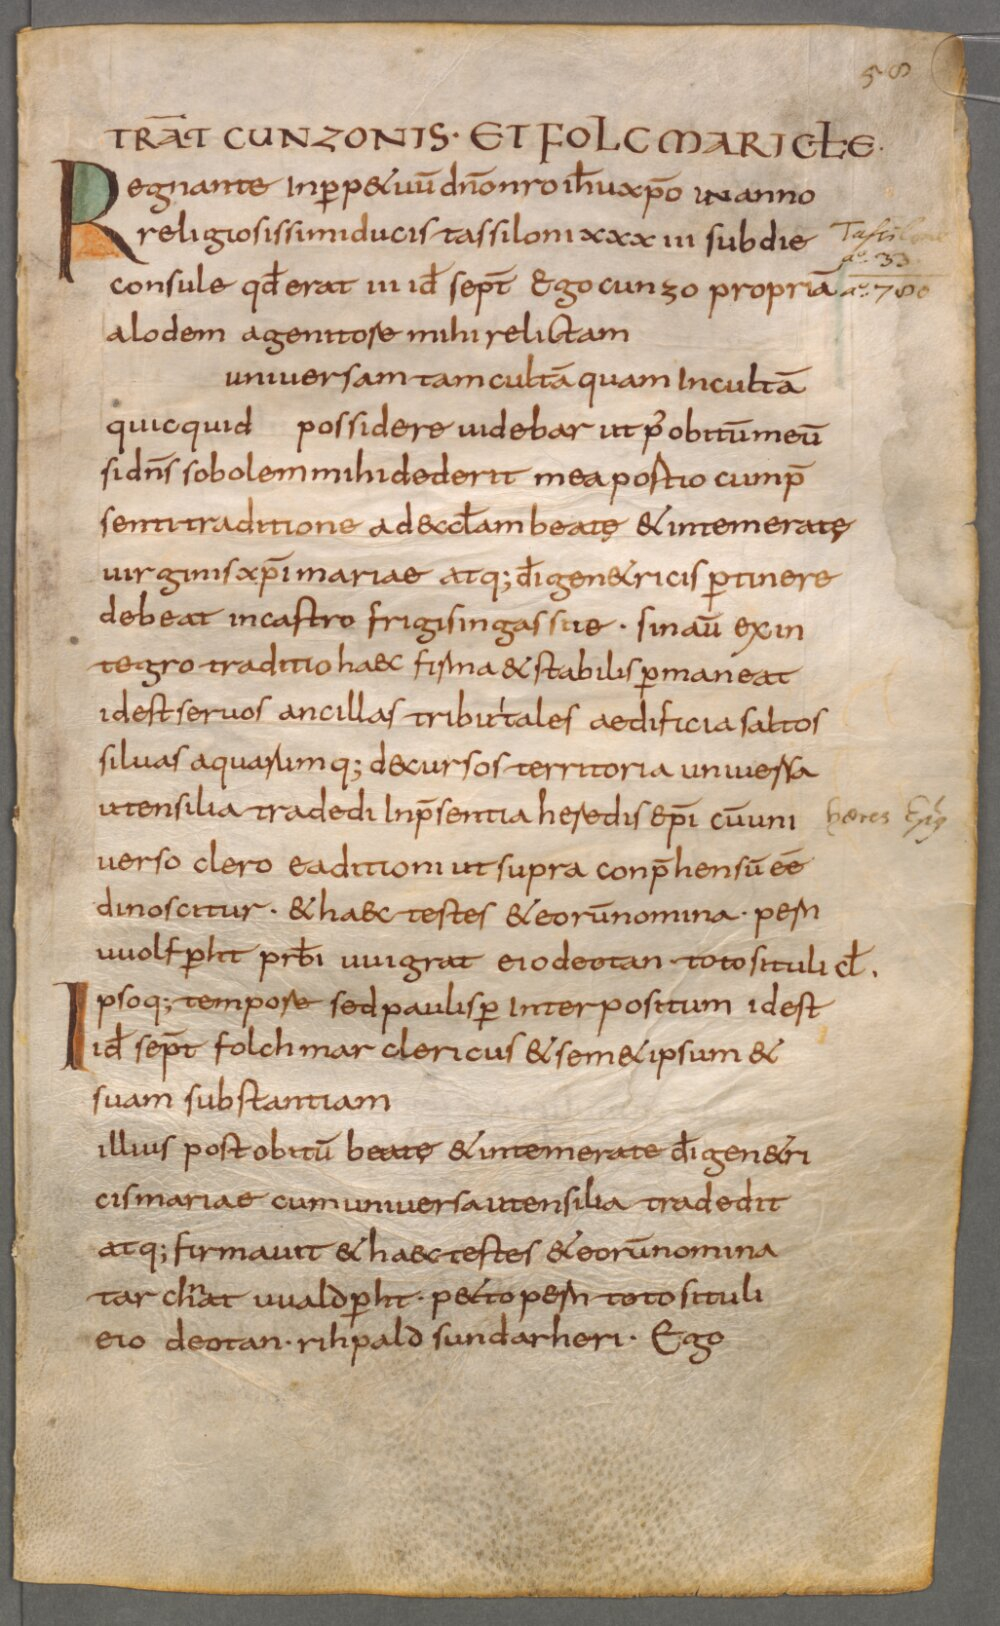 58
TRĀT CUNZONIS · ET FOLCMARI CŁE ·
Regnante Inp̱p&uū dn̄o nro ih̄u xp̄o in anno
religiosissimi ducis tassiloni xxx iii sub die
consule qđ erat iii iđ sep̄t Ego cunzo propriā
alodem a genitore mihi relictam
uniuersam tam cultā quam Incultā
quicquid possidere uidebar ut p̄ obitū meū
si dn̄s sobolem mihi dederit mea portio cum p̄
senti traditione ad &ccłam beatę & intemeratę
uirginis xp̄i mariae atq; đi gen&ricis p̱tinere
debeat in castro frigisingassue · sin aū ex in
tegro traditio haec firma & stabilis p̱maneat
id est seruos ancillas tributales aedificia saltos
siluas aquarumq; decursos territoria uniuersa
utensilia tradedi In p̄sentia heredis ep̄i cū uni
uerso clero ea ditioni ut supra conp̄hensū ēē
dinoscitur · & haec testes & eorū nomina · pern
uuolfp̱ht prb̄i uuigrat eio deotan toto situli cł.
Ipsoq; tempore sed paulisp̱ Interpositum id est
iđ sep̄t folchmar clericus & sem&ipsum &
suam substantiam
illius post obitū beatę & intemerate đi gen&ri
cis mariae cum uniuersa utensilia tradedit
atq; firmauit & haec testes & eorū nomina
tarchnat uualdp̱ht · p&to pern toto situli
eio deotan · rihpald sundarheri · Ego
Tassilone
aº. 33
aº. 780
hæres Ep̄s